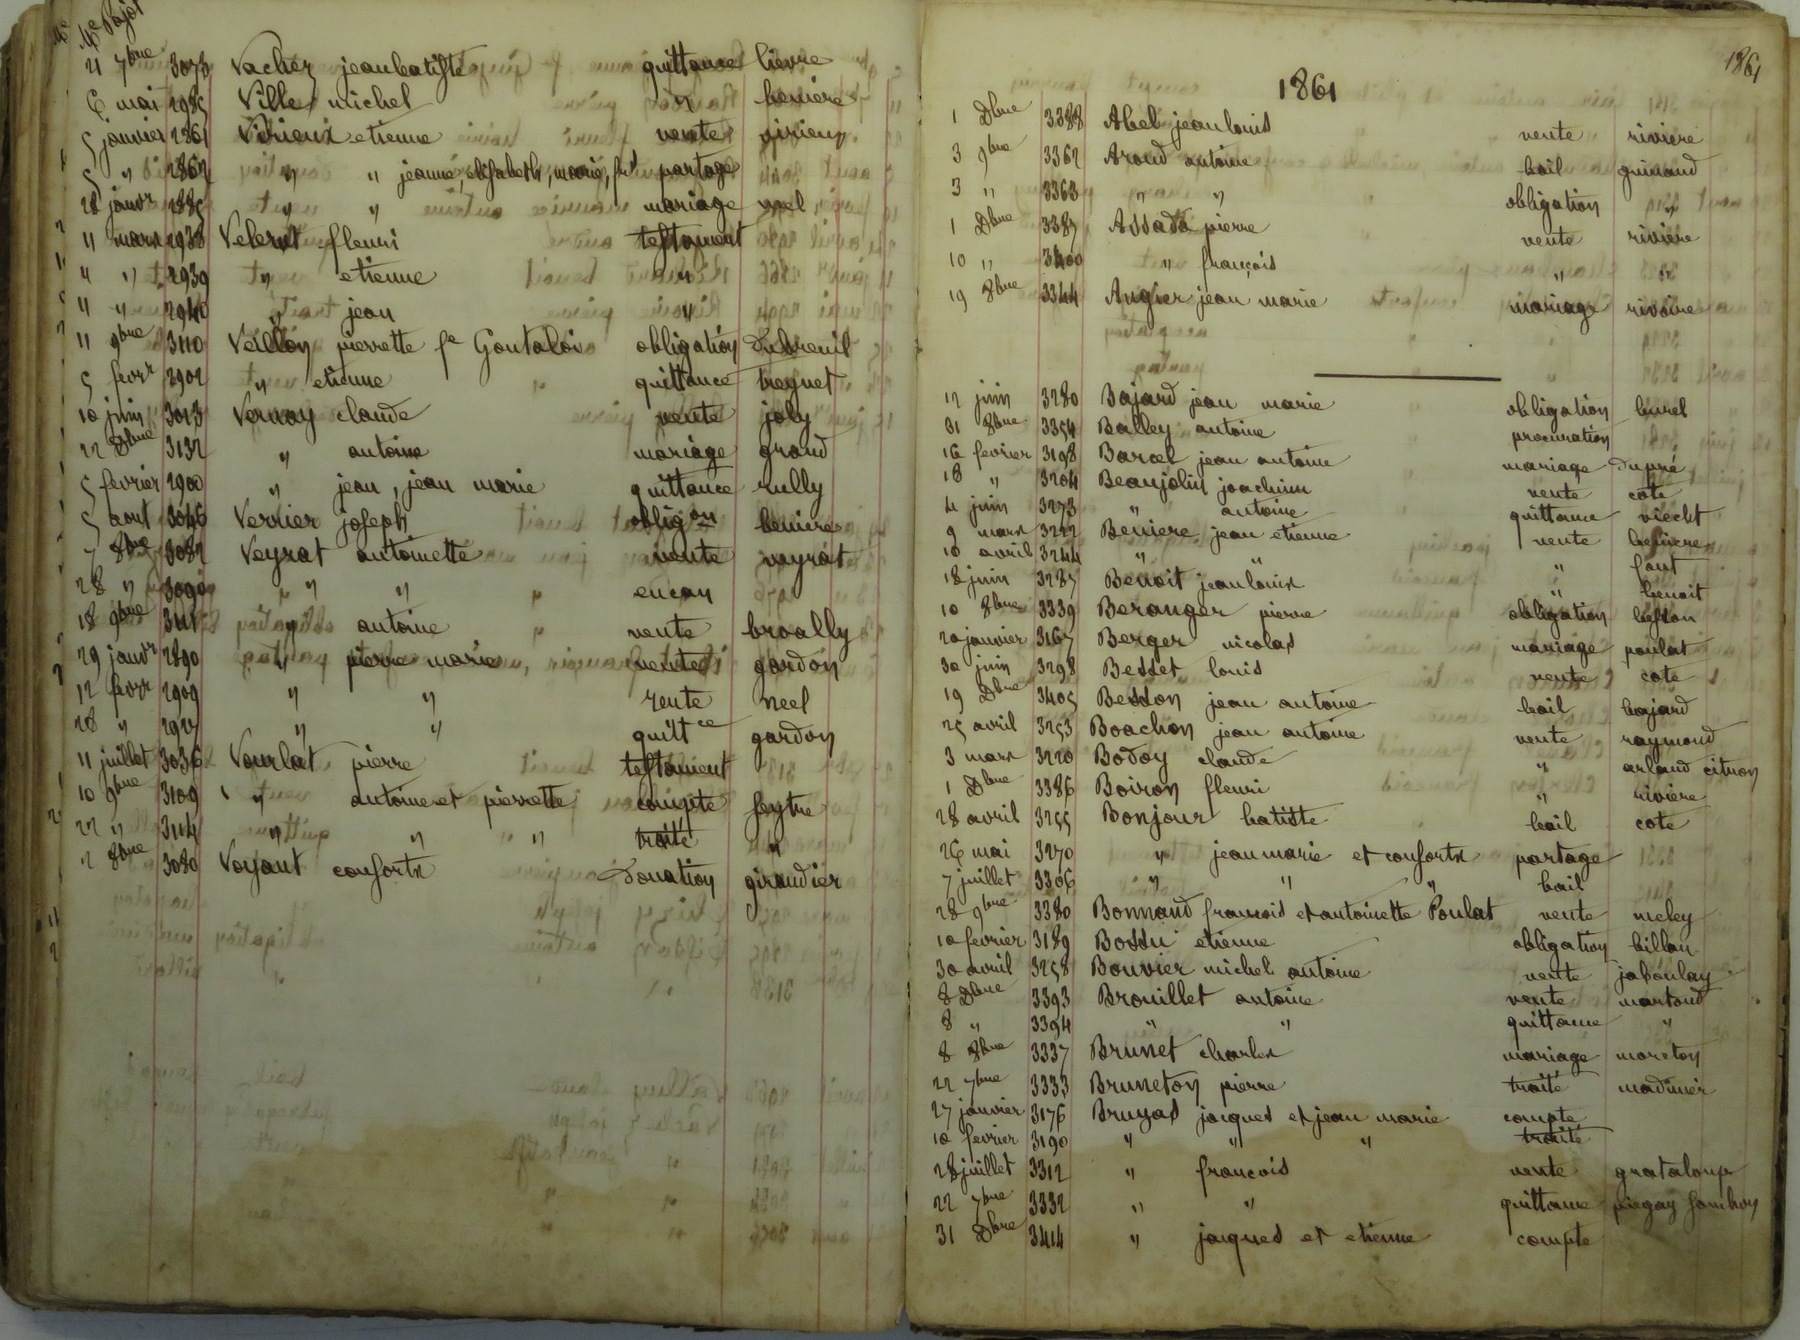 21 7bre 3073 Vachez jeanbatiste quittance lievre
6 mai 2985 Ville michel " beniere
5 janvier 2861 Virieux etienne vente virieux
5 " 2862 " " jeanne, elisabeth, marie, partage
28 janvr 2885 " " mariage neel
11 mars 2938 Velerut fleuri testament
" " 2939 " etienne "
" " 2940 " jean "
11 9bre 3110 Veillon pierrette fe Goutaloi obligation Dubreuil
5 fevr 2902 " etienne quittance treynet
10 juin 3013 Vernay claude vente joly
22 Dbre 3132 " antoine mariage grand
5 fevrier 2900 " jean, jean marie quittance rully
5 aout 3046 Verrier joseph obligon beniere
7 8bre 3082 Veyrat antoinette vente veyrat
28 " 3090 " " " encan
18 9bre " antoine vente broally
29 janvr 2890 " pierre marie vente gardon
12 fevr 2909 " " vente neel
28 " 2927 " " quittce gardon
11 juillet 3036 Vourlat pierre testament
10 9bre 3109 " antoine et pierrette compte feytre
22 " 3114 " " " traité "
2 8bre 3080 Voyant conforts Donation giraudier
1861
1861
1 Dbre 3388 Abel jean louis vente riviere
3 9bre 3362 Aroud antoine bail guinand
3 " 3363 " " obligation "
1 Dbre 3387 Assada pierre vente riviere
10 " 3400 " françois " "
19 8bre 3344 Augier jean marie mariage rivoire
12 juin 3280 Bajard jean marie obligation burel
31 8bre 3354 Balley antoine procuration
16 fevrier 3198 Barcel jean antoine mariage Dupré
18 " 3204 Beaujolin joachim vente cote
4 juin 3273 " antoine quittance viecht
9 mars 3222 Beniere jean etienne vente beniere
10 avril 3244 " " " faut
18 juin 3287 Benoit jean louis " benoit
10 8bre 3339 Beranger pierre obligation besson
20 janvier 3167 Berger nicolas mariage poulat
30 juin 3298 Besset louis vente cote
19 Dbre 3405 Besson jean antoine bail bajard
25 avril 3253 Boachon jean antoine vente raymond
3 mars 3220 Bodoy claude " arland citron
1 Dbre 3386 Boiron fleuri " riviere
28 avril 3255 Bonjour batiste bail cote
26 mai 3270 " jean marie et conforts partage
7 juillet 3306 " " " bail
28 9bre 3380 Bonnand francois et antoinette Poulat vente meley
10 fevrier 3189 Bossu etienne obligation billau
30 avril 3258 Bouvier michel antoine vente jaboulay
8 Dbre 3393 Brouillet antoine vente martoud
8 " 3394 " " quittance "
8 8bre 3337 Brunet charles mariage moreton
22 7bre 3333 Bruneton pierre traité madinier
27 janvier 3176 Bruyas jacques et jean marie compte
10 fevrier 3190 " " " traité
28 juillet 3312 " francois vente grataloup
22 7bre 3332 " " quittance piegay
31 Dbre 3414 " jacques et etienne compte